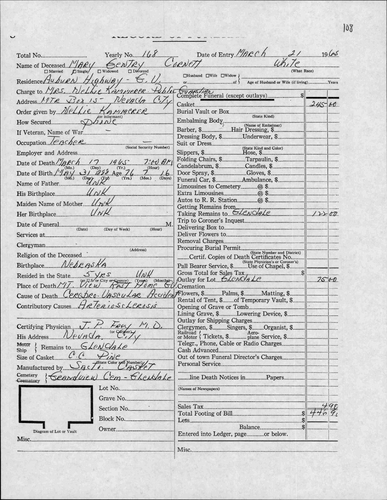 108
Total No. Yearly No. 168 Date of Entry March 21 1965
Name of Deceased Mary Gentry Cornett White
Married Single Widowed Divorced (What Race)
Residence Auburn Highway - G.V. Husband Wife Widow of
Age of Husband or Wife (if living)
Charge to Mrs. Nellie Kammerer Public Guardian
Complete Funeral (except outlays) $
Address Star Box 15 - Nevada City
Casket 245 00
Order given by Nellie Kammerer
Burial Vault or Box
(State Kind)
How Secured
Embalming Body
(Name of Embalmer)
If Veteran, Name of War
Barber, $ Hair Dressing, $
Occupation Teacher
Dressing Body, $ Underwear, $
(Social Security Number)
Suit or Dress
(State Kind and Color)
Employer and Address
Slippers, $ Hose, $
Date of Death March 17 1965 7:00 AM
Folding Chairs, $ Tarpaulin, $
Candelabrum, $ Candles, $
Date of Birth May 31 1888 Age 76 9 16
Door Spray, $ Gloves, $
Name of Father Unk
Funeral Car, $ Ambulance, $
Limousines to Cemetery @ $
His Birthplace Unk
Extra Limousines @ $
Maiden Name of Mother Unk
Autos to R. R. Station @ $
Getting Remains from
Her Birthplace Unk
Taking Remains to Glendale 122 00
Date of Funeral M
Trip to Coroner's Inquest
Delivering Box to
Services at
Deliver Flowers to
Clergyman
Removal Charges
(Address)
Procuring Burial Permit
(State Number and District)
Religion of the Deceased
Certif. Copies of Death Certificates No.
Birthplace Nebraska
Pall Bearer Service, $ Use of Chapel, $
Resided in the State 5 yrs Unk
Gross Total for Sales Tax $
Outlay for Lot Glendale 75 00
Place of Death Mt View Rest Home GV
Cremation
Cause of Death Cerebro Vascular Accident
Flowers, $ Palms, $ Matting, $
Rental of Tent, $ of Temporary Vault, $
Contributory Causes Arteriosclerosis
Opening of Grave or Tomb
Lining Grave, $ Lowering Device, $
Outlay for Shipping Charges
Certifying Physician J. P. Frey M.D.
Clergymen, $ Singers, $ Organist, $
His Address Nevada City
Railroad or Motor Tickets, $ Aeroplane Service, $
Motor Ship Remains to Glendale
Telegr., Phone, Cable or Radio Charges
Cash Advanced
Size of Casket CC Pine
Out of town Funeral Director's Charges
Manufactured by Casket
Personal Service
Cemetery Crematory Grandview Cem - Glendale
line Death Notices in Papers
Lot No.
(Names of Newspapers)
Grave No.
Section No.
Sales Tax 4 90
Block No.
Total Footing of Bill $
Lots
Owner
Balance $
Diagram of Lot or Vault
Entered into Ledger, page or below.
Misc. Misc.